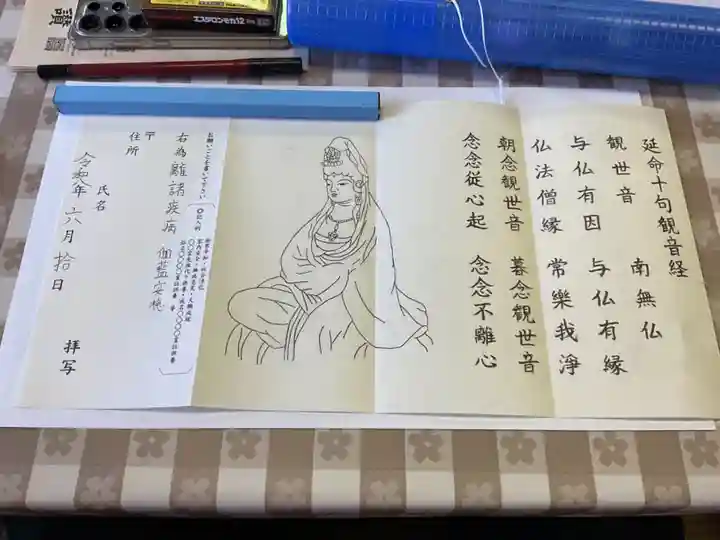 延命十句観音経
観世音 南無仏
与仏有因 与仏有縁
仏法僧縁 常樂我淨
朝念観世音 暮念観世音
念念従心起 念念不離心
お願いごとを書いて下さい
右為 離諸疾病 伽藍安穏
〒
住所
氏名
拾日 拝写
エスタロンモカ12